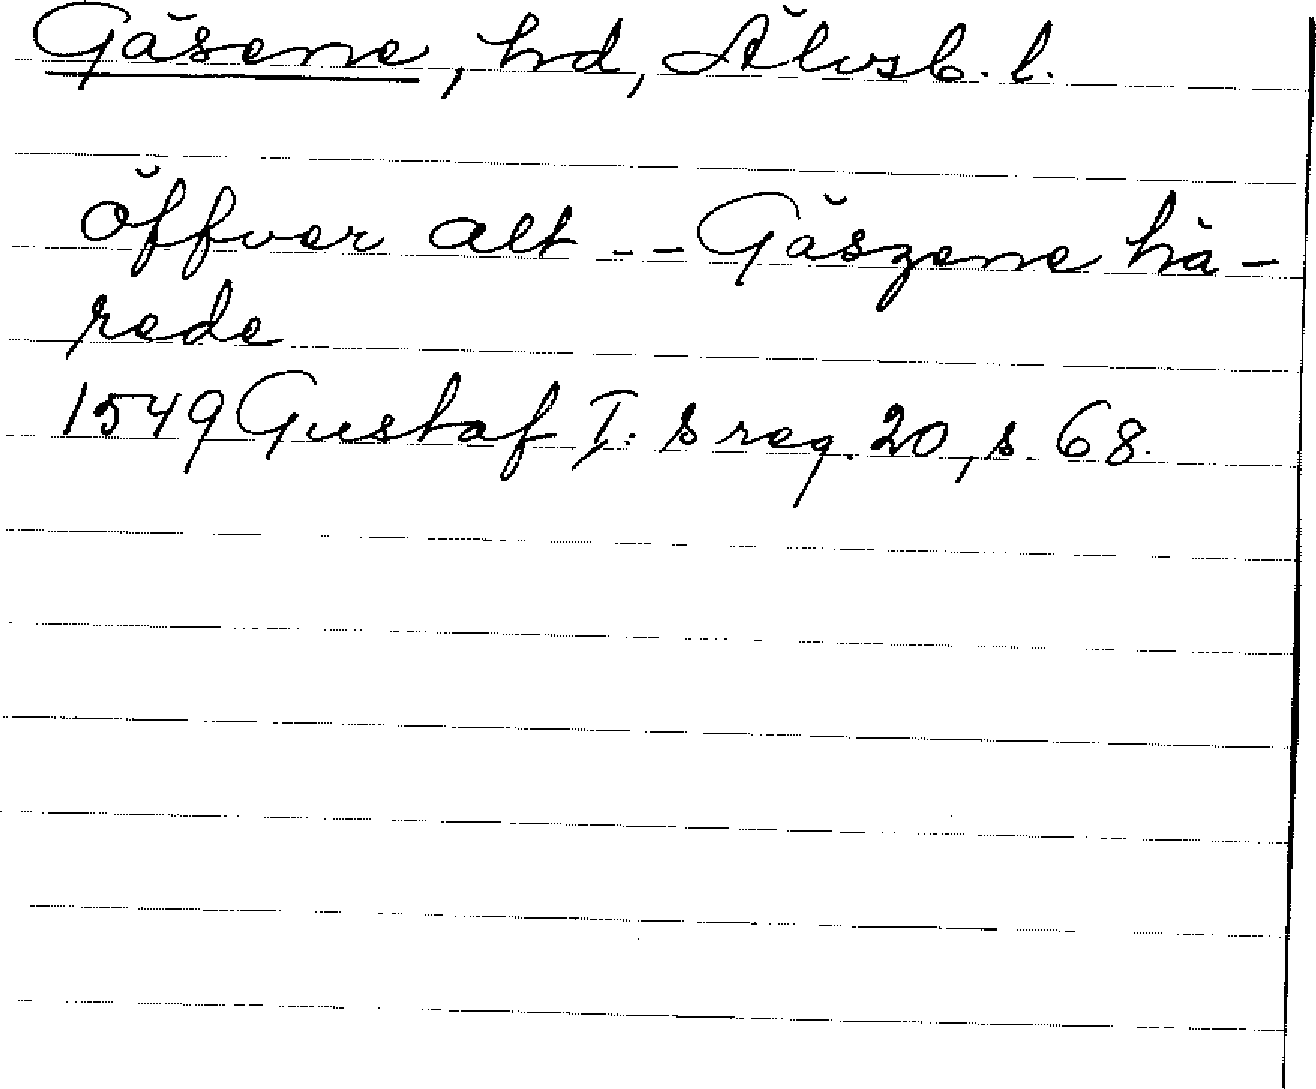 Gäsene, hd, Älvsb. l.
öffver alt -- Gäszene hä-
rede
1549 Gustaf I:s reg. 20, s. 68.